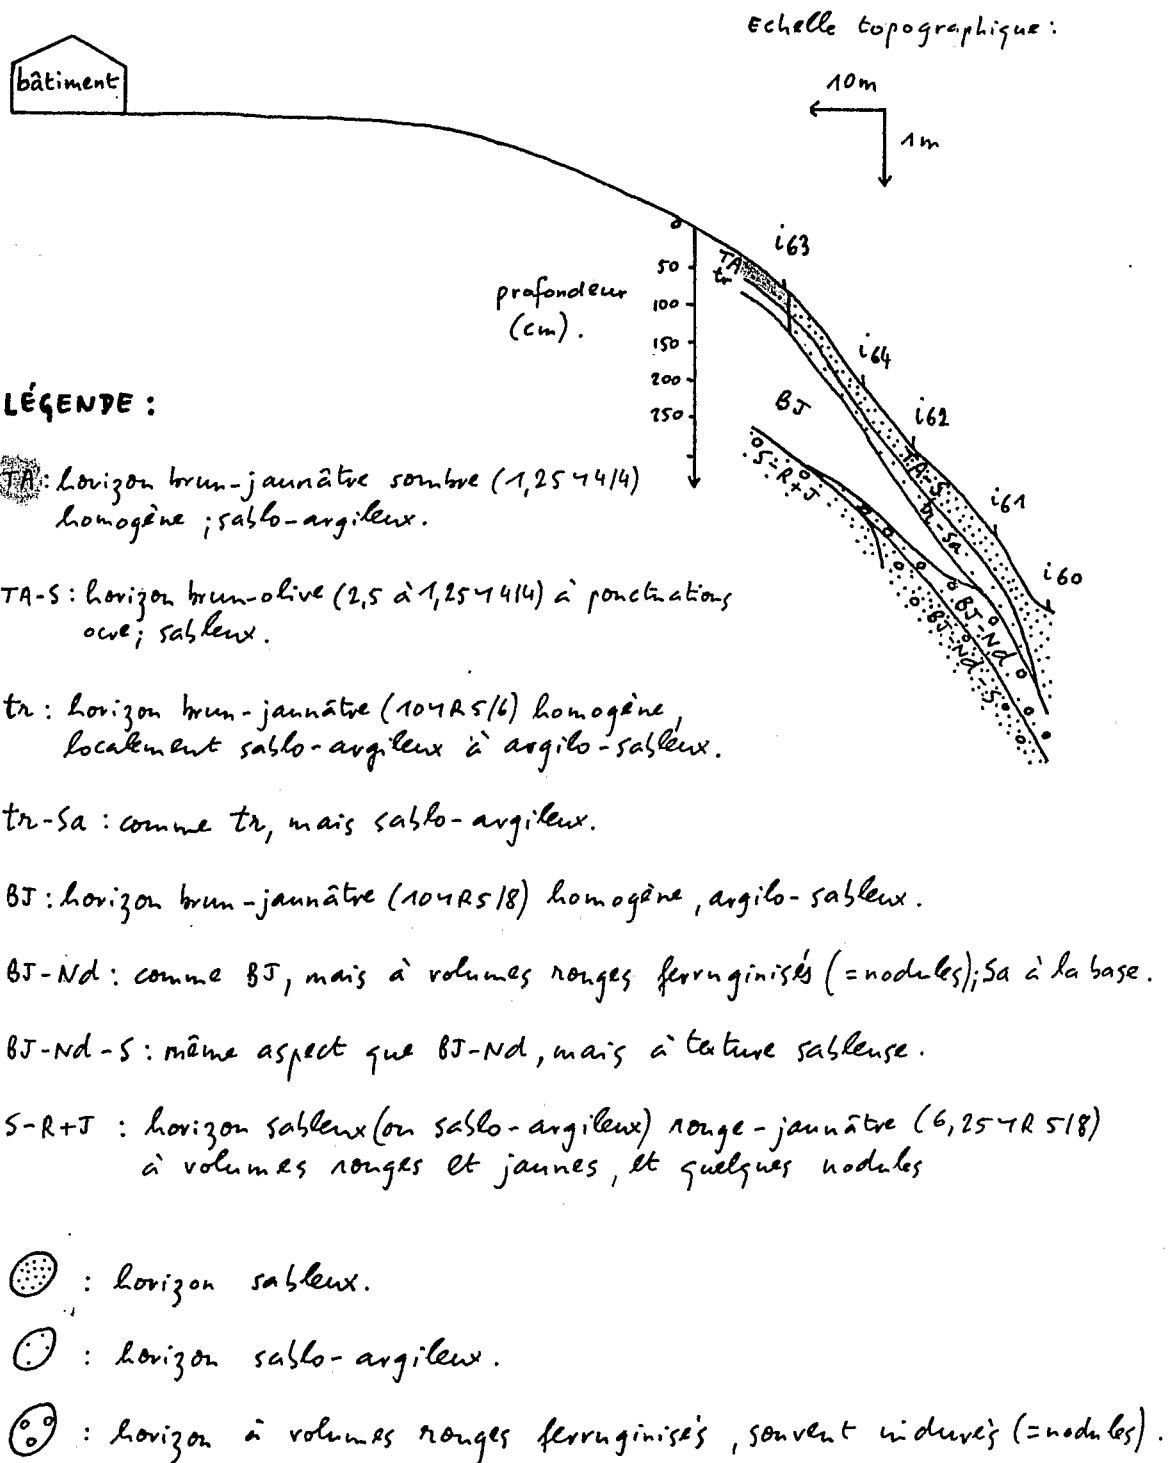 Echelle topographique :
bâtiment
10m
1m
0
50
100
150
200
250
profondeur
(cm).
TA
tr
i63
i64
i62
i61
i60
BJ
S-R+J
TA-S
tr-Sa
BJ-Nd
BJ-Nd-S
LÉGENDE :
TA : horizon brun-jaunâtre sombre (1,25Y4/4)
homogène ; sablo-argileux.
TA-S : horizon brun-olive (2,5 à 1,25Y4/4) à ponctuations
ocre; sableux.
tr : horizon brun-jaunâtre (10YR5/6) homogène,
localement sablo-argileux à argilo-sableux.
tr-Sa : comme tr, mais sablo-argileux.
BJ : horizon brun-jaunâtre (10YR5/8) homogène, argilo-sableux.
BJ-Nd : comme BJ, mais à volumes rouges ferruginisés (=nodules); Sa à la base.
BJ-Nd-S : même aspect que BJ-Nd, mais à texture sableuse.
S-R+J : horizon sableux (ou sablo-argileux) rouge-jaunâtre (6,25YR5/8)
à volumes rouges et jaunes, et quelques nodules
: horizon sableux.
: horizon sablo-argileux.
: horizon à volumes rouges ferruginisés, souvent indurés (=nodules).